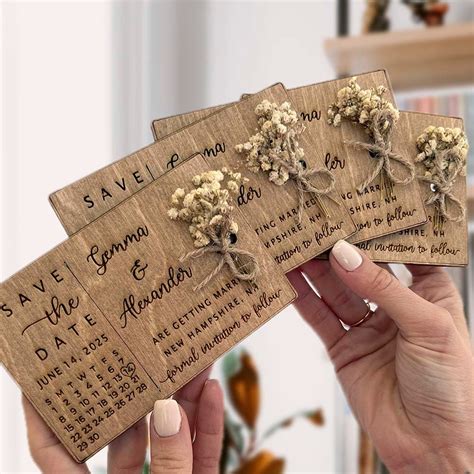 SAVE
the
DATE
JUNE 14, 2025
S M T W T F S
1 2 3 4 5 6 7
8 9 10 11 12 13 14
15 16 17 18 19 20 21
22 23 24 25 26 27 28
29 30
Gemma
&
Alexander
ARE GETTING MARRIED
NEW HAMPSHIRE, NH
formal invitation to follow
SAVE
Gemma
&
GETTING MARRIED
HAMPSHIRE, NH
invitation to follow
Gemma
formal invitation to follow
invitation to follow